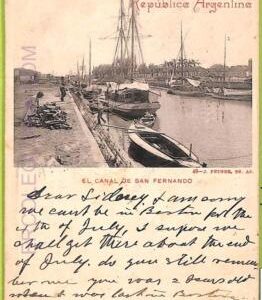 República Argentina
J. PEUSER, BS. AS.
EL CANAL DE SAN FERNANDO
Dear Sidney, I am sorry
we can't be in Boston for the
4th of July, I supose we
shall get there about the end
of July. do you still remem
ber me you was 2 years old
when I was last in Boston